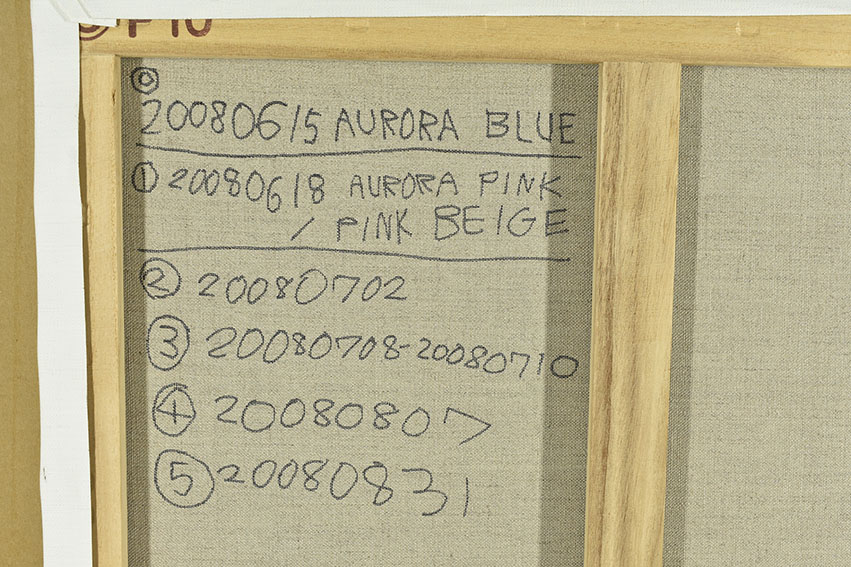 F10
⓪
20080615 AURORA BLUE
① 20080618 AURORA PINK
/ PINK BEIGE
② 20080702
③ 20080708-20080710
④ 20080807
⑤ 20080831